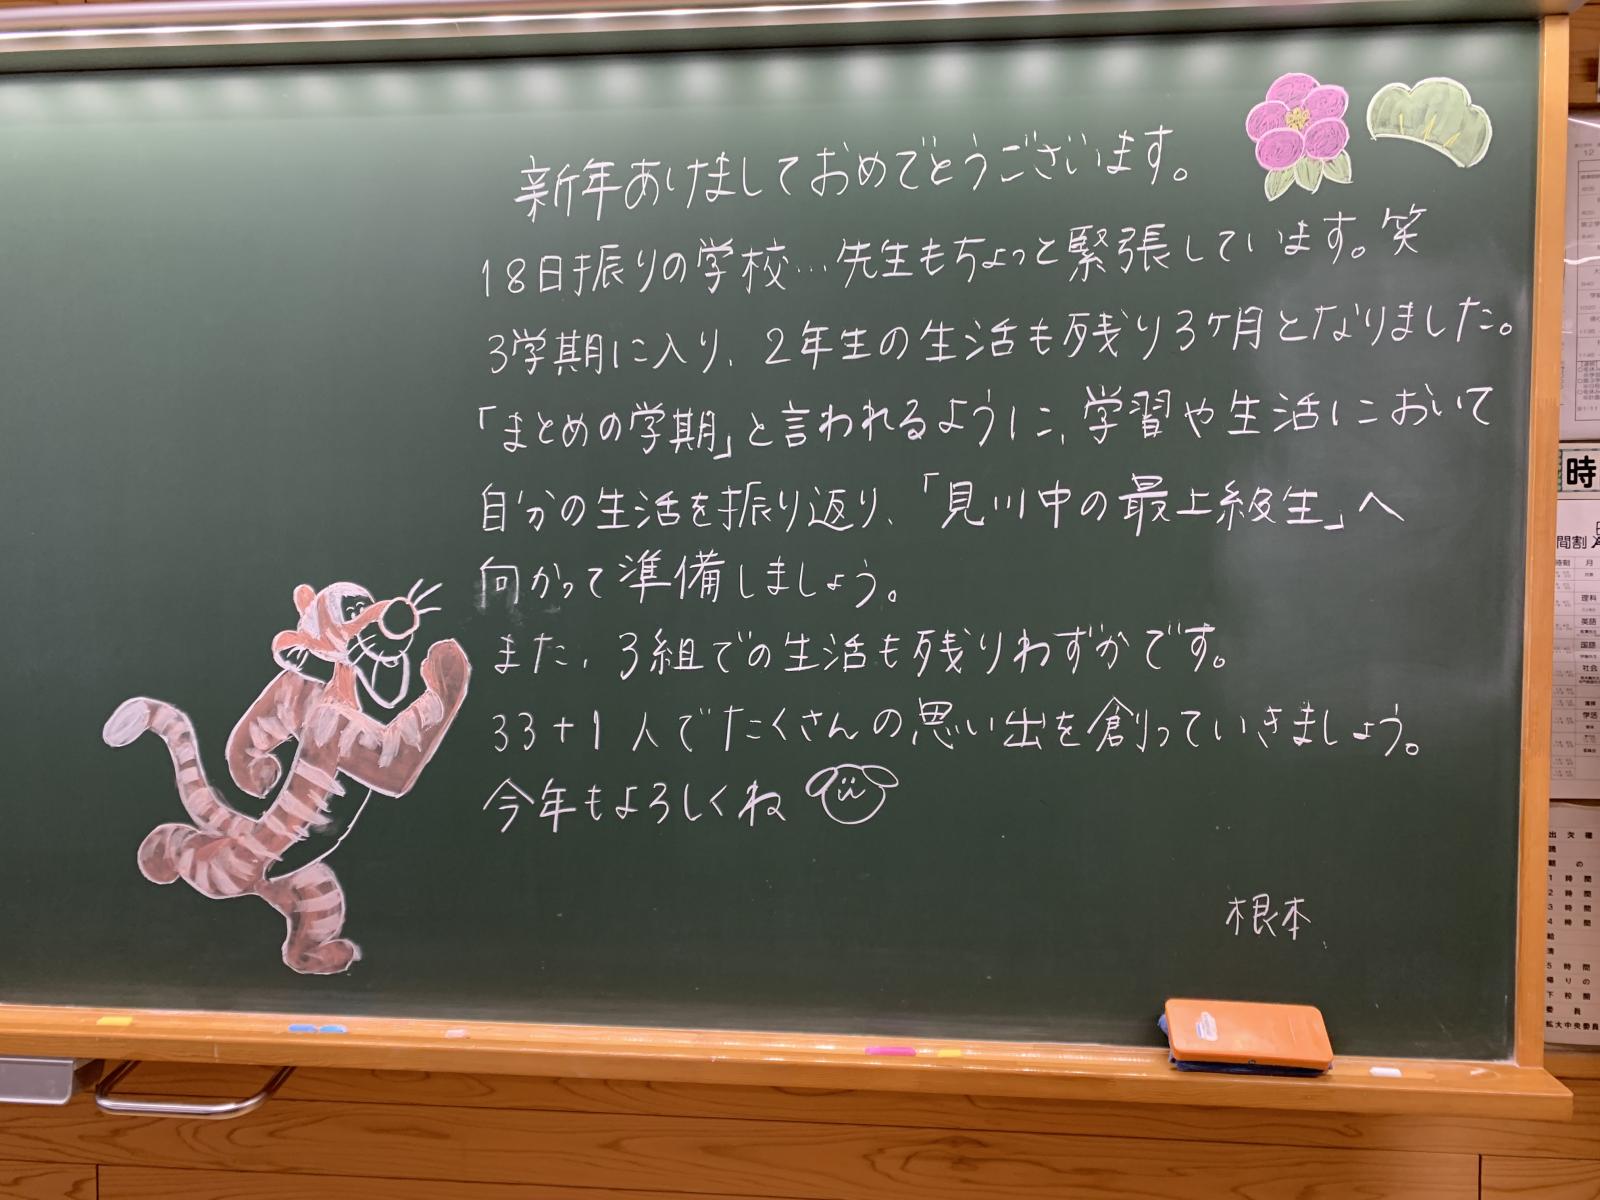 新年あけましておめでとうございます。
18日振りの学校…先生もちょっと緊張しています。笑
3学期に入り、2年生の生活も残り3ヶ月となりました。
「まとめの学期」と言われるように、学習や生活において
自分の生活を振り返り、「見川中の最上級生」へ
向かって準備しましょう。
また、3組での生活も残りわずかです。
33+1人でたくさんの思い出を創っていきましょう。
今年もよろしくね
根本
時
間割
時刻 月
理科
英語
国語
社会
学活
出欠確
読
朝の
1時間
2時間
3時間
4時間
給
清
5時間
帰りの
下校開
委員
拡大中央委員